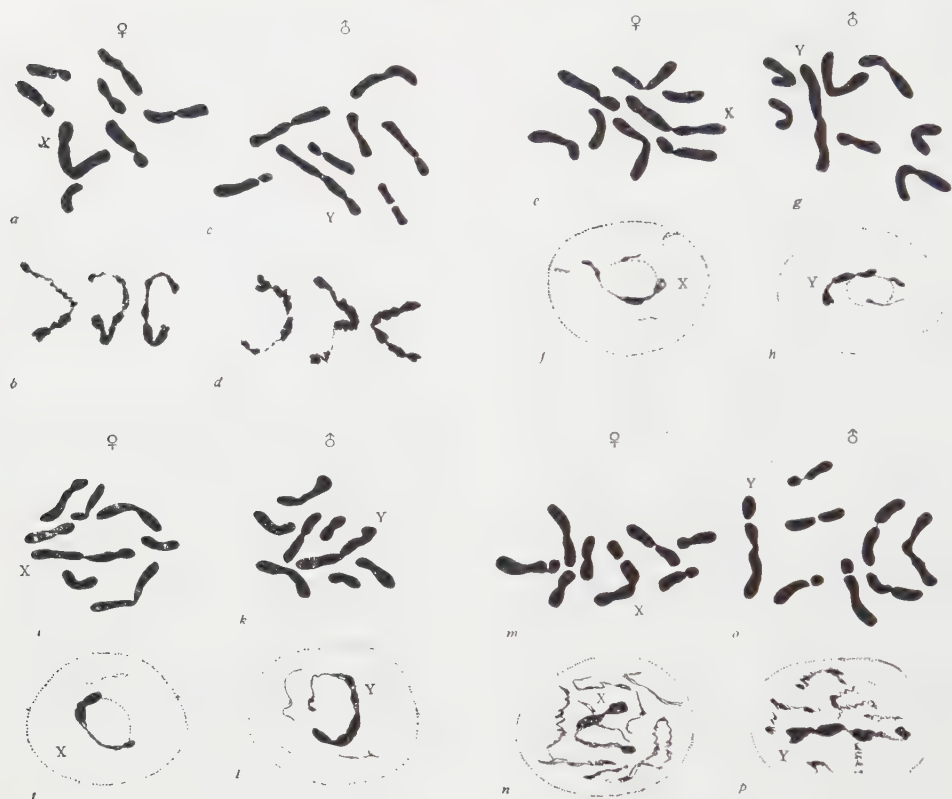 ♀ ♂ ♀ ♂
X Y X Y
a c e g
X Y
b d f h
♀ ♂ ♀ ♂
X Y X Y
i k m o
X Y X Y
l n p